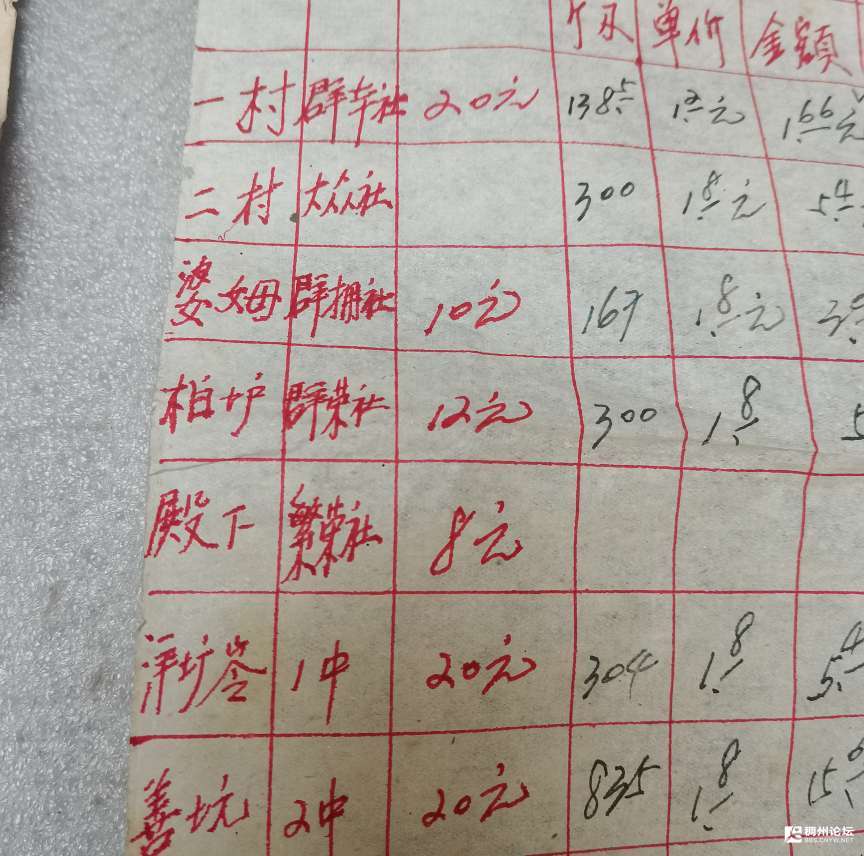 单价 金额
一村 群力社 20元 1385 1.2元 1.66元
二村 大众社 300 1.8元 5.4
婆姆 群拥社 10元 167 1.8元
柏垆 群荣社 12元 300 1.8 5
殿下 繁荣社 8元
洋坑岺 1中 20元 304 1.8 5.4
善坑 2中 20元 835 1.8 15.0
稠州论坛
BBS.CNYW.NET